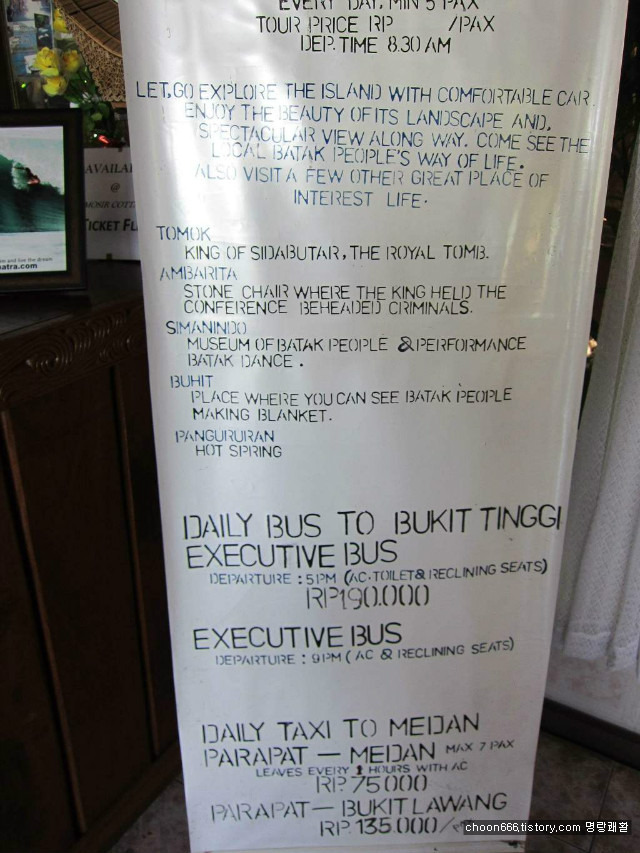 EVERY DAY, MIN 5 PAX
TOUR PRICE RP /PAX
DEP. TIME 8.30 AM
LET,GO EXPLORE THE ISLAND WITH COMFORTABLE CAR.
ENJOY THE BEAUTY OF ITS LANDSCAPE AND,
SPECTACULAR VIEW ALONG WAY. COME SEE THE
LOCAL BATAK PEOPLE'S WAY OF LIFE.
ALSO VISIT A FEW OTHER GREAT PLACE OF
INTEREST LIFE.
TOMOK
KING OF SIDABUTAR, THE ROYAL TOMB.
AMBARITA
STONE CHAIR WHERE THE KING HELD THE
CONFERENCE BEHEADED CRIMINALS.
SIMANINDO
MUSEUM OF BATAK PEOPLE & PERFORMANCE
BATAK DANCE.
BUHIT
PLACE WHERE YOU CAN SEE BATAK PEOPLE
MAKING BLANKET.
PANGURURAN
HOT SPRING
DAILY BUS TO BUKIT TINGGI
EXECUTIVE BUS
DEPARTURE : 5 PM (AC.TOILET & RECLINING SEATS)
RP190.000
EXECUTIVE BUS
DEPARTURE : 9 PM ( AC & RECLINING SEATS)
DAILY TAXI TO MEDAN
PARAPAT — MEDAN MAX 7 PAX
LEAVES EVERY 1 HOURS WITH AC
RP 75000
PARAPAT — BUKIT LAWANG
RP. 135.000/
@
TICKET
live the dream
atra.com
choon666.tistory.com 명랑쾌활